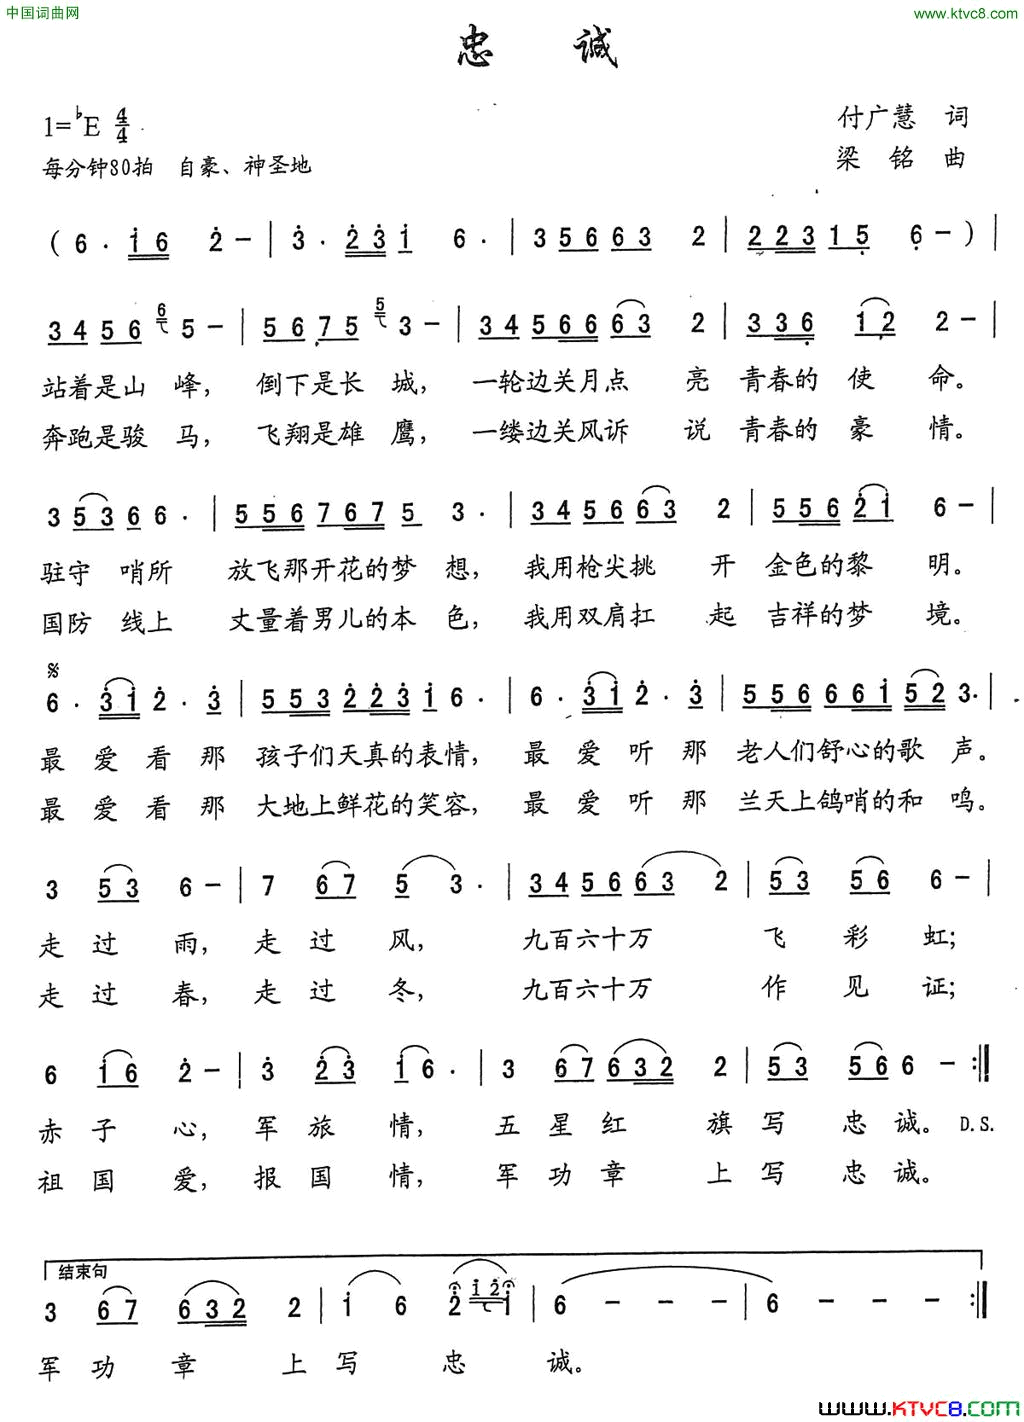 中国词曲网 www.ktvc8.com
忠 诚
1=♭E 4/4 付广慧 词
每分钟80拍 自豪、神圣地 梁 铭 曲
( 6 · i 6 2 – | 3 · 2 3 i 6 · | 3 5 6 6 3 2 | 2 2 3 1 5 6 – ) |
3 4 5 6 6 5 – | 5 6 7 5 5 3 – | 3 4 5 6 6 6 3 2 | 3 3 6 1 2 2 – |
站着是山 峰, 倒下是长 城, 一轮边关月点 亮 青春的 使 命。
奔跑是骏 马, 飞翔是雄 鹰, 一缕边关风诉 说 青春的 豪 情。
3 5 3 6 6 · | 5 5 6 7 6 7 5 3 · | 3 4 5 6 6 3 2 | 5 5 6 2 i 6 – |
驻守 哨所 放飞那开花的梦 想, 我用枪尖挑 开 金色的黎 明。
国防 线上 丈量着男儿的本 色, 我用双肩扛 起 吉祥的梦 境。
6 · 3 i 2 · 3 | 5 5 3 2 2 3 i 6 · | 6 · 3 i 2 · 3 | 5 5 6 6 6 i 5 2 3 · |
最 爱 看 那 孩子们天真的表情, 最 爱 听 那 老人们舒心的歌 声。
最 爱 看 那 大地上鲜花的笑容, 最 爱 听 那 兰天上鸽哨的和 鸣。
3 5 3 6 – | 7 6 7 5 3 · | 3 4 5 6 6 3 2 | 5 3 5 6 6 – |
走 过 雨, 走 过 风, 九百六十万 飞 彩 虹;
走 过 春, 走 过 冬, 九百六十万 作 见 证;
6 i 6 2 – | 3 2 3 i 6 · | 3 6 7 6 3 2 2 | 5 3 5 6 6 – :‖
赤 子 心, 军 旅 情, 五 星 红 旗 写 忠 诚。 D.S.
祖 国 爱, 报 国 情, 军 功 章 上 写 忠 诚。
结束句
3 6 7 6 3 2 2 | i 6 2 i 2 i | 6 – – – | 6 – – – :‖
军 功 章 上 写 忠 诚。
www.KTVC8.com